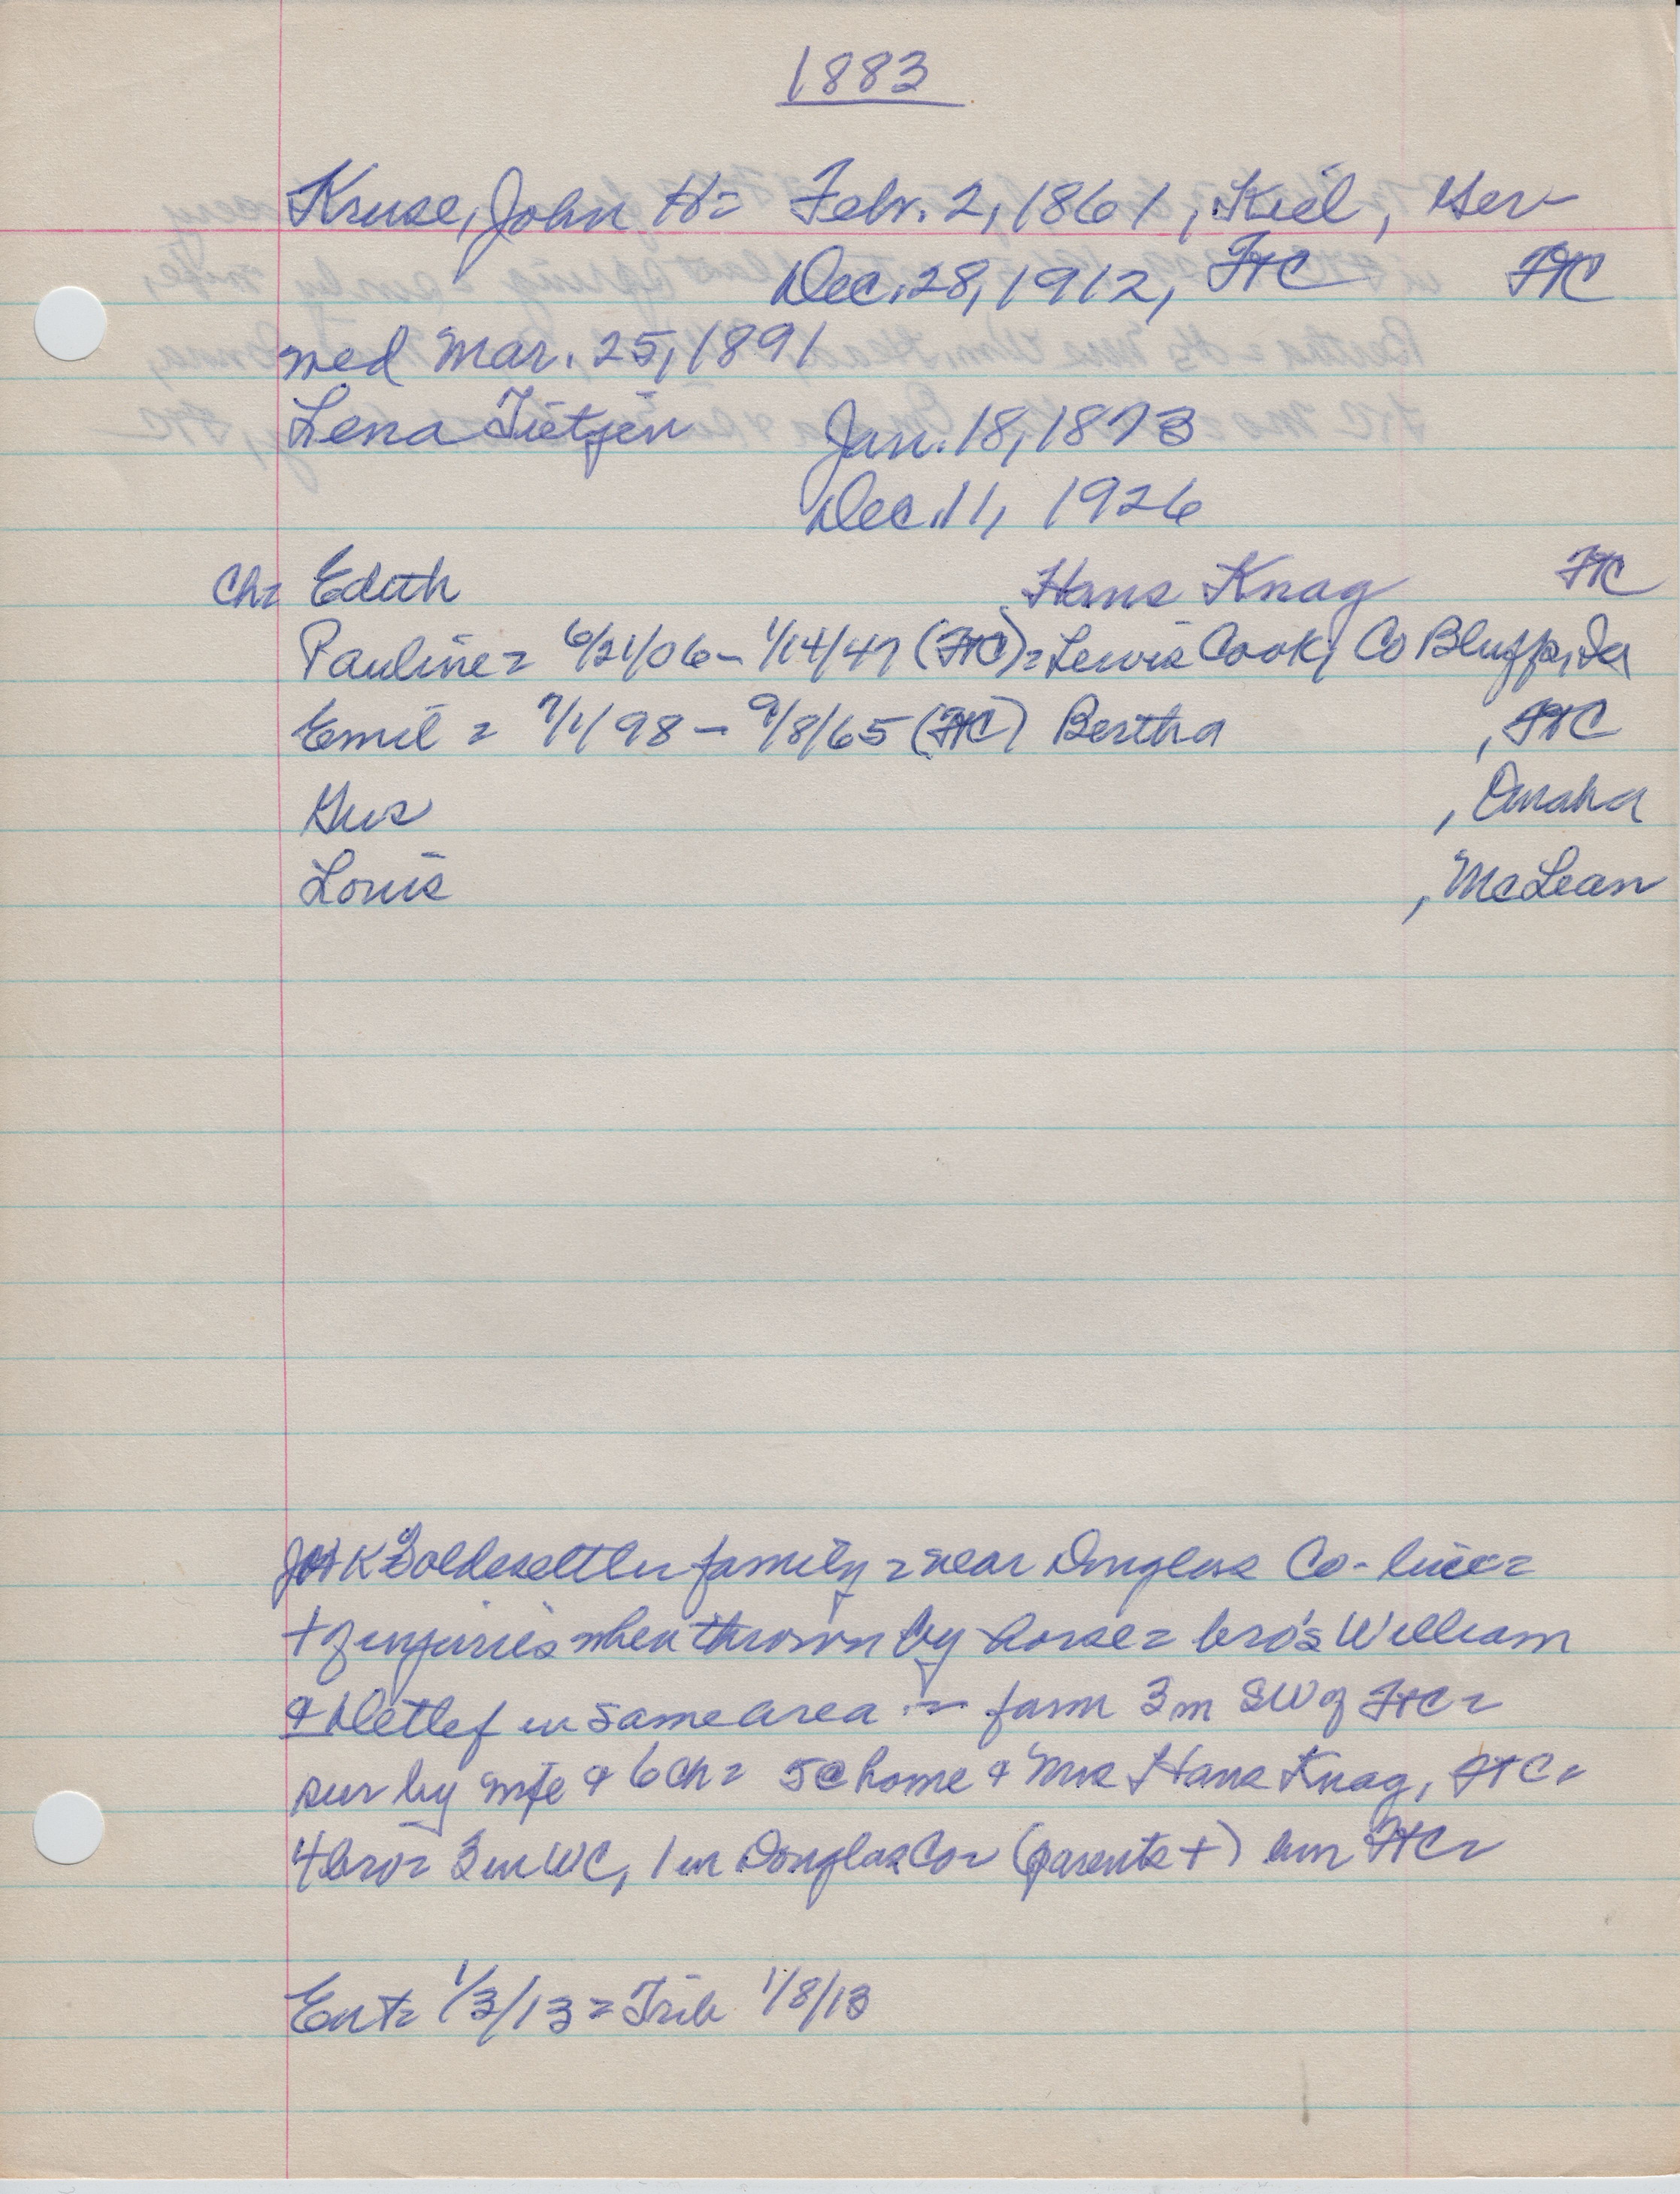 1883
Kruse, John H= Febr. 2, 1861, Kiel, Ger-
Dec. 28, 1912, FTC FTC
med Mar. 25, 1891
Lena Tietjen Jan. 18, 1873
Dec. 11, 1926
Ch= Edith Hans Knag FTC
Pauline= 6/21/06- 1/14/47 (FTC)= Lewis Cook, Co Bluffs, Ia
Emil = 7/1/98 - 9/8/65 (FTC) Bertha , FTC
Gus , Omaha
Louis , McLean
JHK = oldsettler family = near Douglas Co-line=
+ of injuries when thrown by horse= bro's William
& Detlef in same area = farm 3m SW of FTC=
sur by wife & 6 ch= 5@home & Mrs Hans Knag, FTC=
4 bro= 3 in WC, 1 in Douglas Co= (parents +) bur FTC=
Ent= 1/3/13= Trib 1/8/13